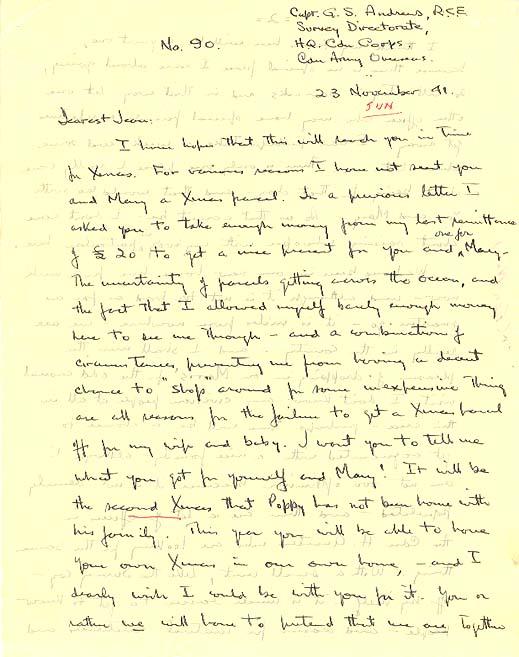 Capt. G. S. Andrews, R.C.E
Survey Directorate,
No. 90.
HQ. Cdn Corps,
Cdn Army Overseas.
23 November 41.
SUN
Dearest Jean:
I have hopes that this will reach you in time
for Xmas. For various reasons I have not sent you
and Mary a Xmas parcel. In a previous letter I
asked you to take enough money from my last remittance
of $20 to get a nice present for you and one for Mary.
The uncertainty of parcels getting across the ocean, and
the fact that I allowed myself barely enough money
here to see me through – and a combination of
circumstances, preventing me from having a decent
chance to "shop" around for some inexpensive thing
are all reasons for the failure to get a Xmas parcel
off for my wife and baby. I want you to tell me
what you got for yourself and Mary! It will be
the second Xmas that Poppy has not been home with
his family. This year you will be able to have
your own Xmas in our own home, – and I
dearly wish I could be with you for it. You or
rather we will have to pretend that we are together